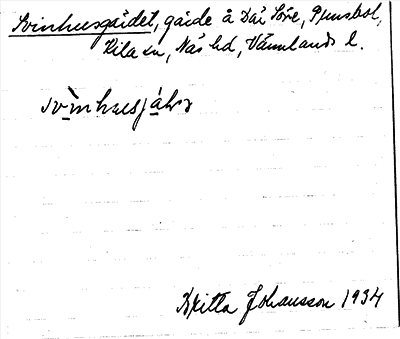 Svinhusgärdet, gärde å Där Söre, Plusbol,
Kila sn, Näs hd, Värmlands l.
svinhusjáḷɜ
Britta Johansson 1934